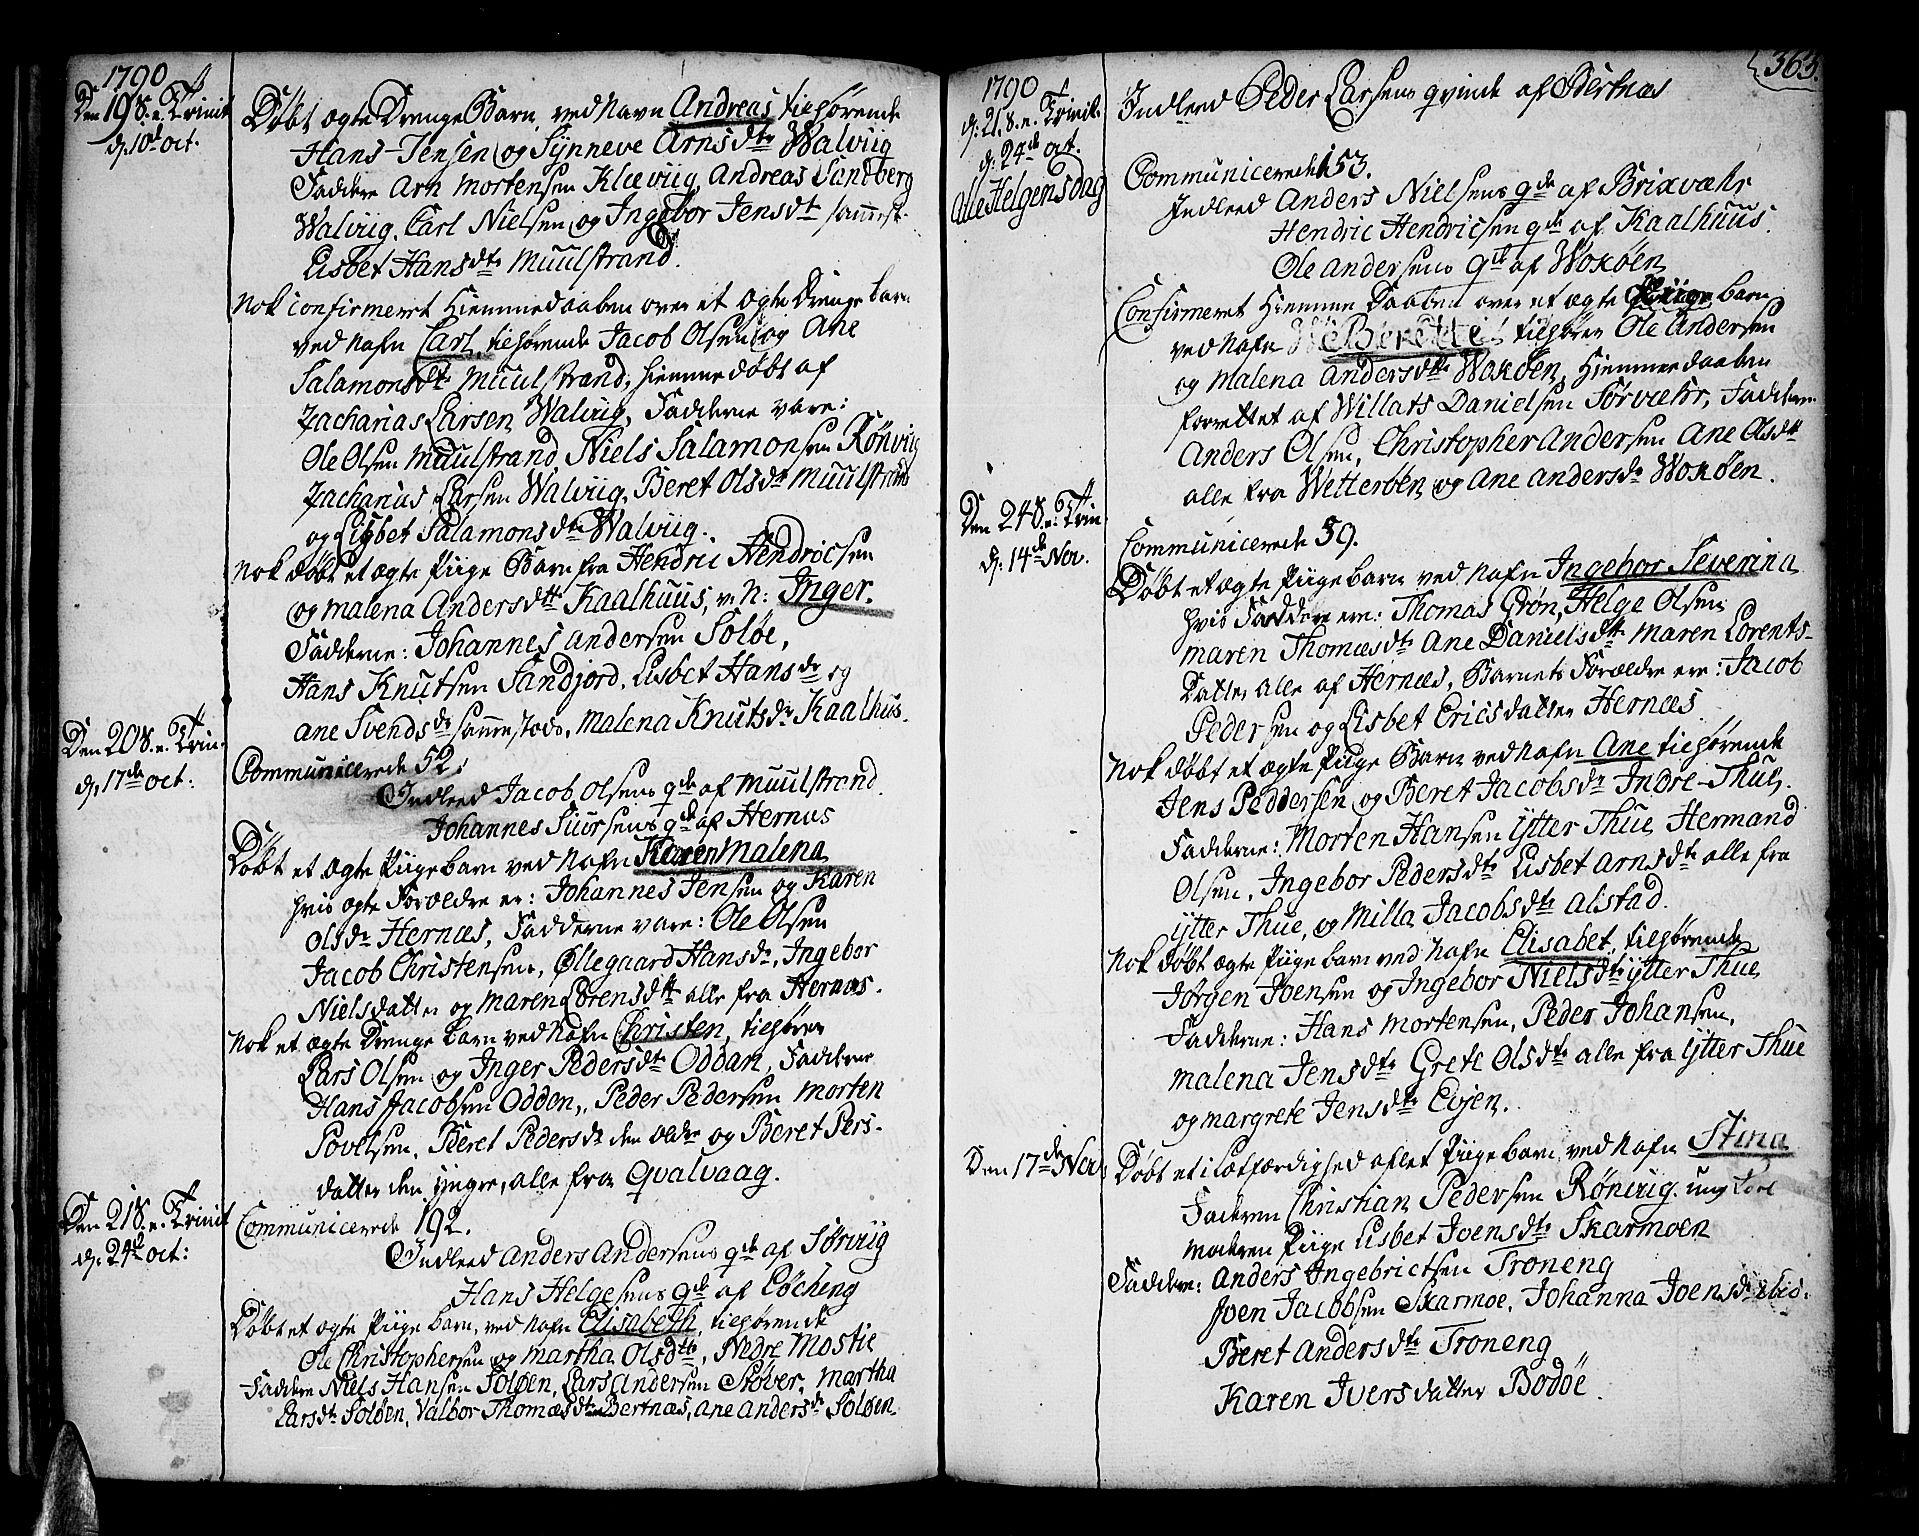 1790
Den 19 S. e. Trinit
d. 10d oct.
Døbt ægte Drenge Barn, ved Navn Andreas tilhørende
Hans Jensen og Synneve Arnsdtr Walviig
Faddere Arn Mortensen Klæviig, Andreas Sandberg
Walviig, Carl Nielsen og Ingebor Jensdtr sammest.
Lisbet Hansdtr Muulstrand.
Nok confirmeret Hiemmedaaben over et ægte Drenge barn
ved Nafn Carl, tilhørende Jacob Olsen og Ane
Salamonsdtr Muulstrand, hiemme døbt af
Zacharias Larsen Walviig, Fadderne vare:
Ole Olsen Muulstrand Niels Salamonsen Rønviig
Zacharias Larsen Walviig, Beret Olsdr Muulstrand
og Lisbet Salamonsdtr Walviig.
Nok døbt et ægte Piige Barn fra Hendric Hendricsen
og Malena Andersdtr Kaalhuus, v. N: Inger.
Fadderne: Johannes Andersen Soløe,
Hans Knutsen Sandjord, Lisbet Hansdr og
Ane Svendsdr sammestæds, Malena Knutsdr Kaalhus.
Den 20 S. e. Trin.
d. 17de oct:
Communicerede 52.
Indleed Jacob Olsens qde af Muulstrand.
Johannes Siursens qde af Hernæs
Døbt et ægte Piige barn ved Nafn Karen Malena
hvis ægte Forældre er: Johannes Jensen og Karen
Olsdr Hernæs, Fadderne vare: Ole Olsen
Jacob Christensen, Øllegaard Hansdr, Ingebor
Nielsdatter og Maren Lorensdtt alle fra Hernæs.
Nok et ægte Drenge barn ved Nafn Christen, tilhører
Lars Olsen og Inger Pedersdtr Oddan, Faddere
Hans Jacobsen Odden, Peder Pedersen Morten
Povelsen, Beret Pedersdr den ældre og Beret Pers-
datter den yngre, alle fra Qvalvaag.
Den 21 S. e. Trinit
d. 24d oct:
Communicerede 192.
Indleed Anders Andersens qde af Sørviig
Hans Helgesens qde af Løcheng
Døbt et ægte Piige barn, ved Nafn Elisabeth, tilhørende
Ole Christophersen og Martha Olsdtr, Nedre Mostie
Faddere Niels Hansen Soløen, Lars Andersen Støver, Martha
Larsdtr Soløen, Valbor Thomæsdtr Bertnæs, Ane Andersdr Soløen.
363.
1790
d. 21. S. e. Trinit.
d. 24de oct.
Alle Helgensdag
Indleed Peder Larsens qvinde af Bertnæs
Communicerede 153.
Indleed Anders Nielsens qde af Brixvæhr
Hendric Hendricsen qde af Kaalhuus.
Ole Andersens qde af Woxøen
Confirmeret Hiemme Daaben over et ægte Piige barn
ved Nafn Berette tilhører Ole Andersen
og Malena Andersdtr Woxøen, Hiemmedaaben
forrettet af Willats Danielsen Sørvæhr, Faddere
Anders Olsen, Christopher Andersen Ane Olsdtt
alle fra Wetterøen og Ane Andersdr Woxøen.
Den 24 S. e. Trin.
d. 14de Nov.
Communicerede 39.
Døbt et ægte Piige barn ved Nafn Ingebor Severina
hvis Faddere ere: Thomas Grøn, Helge Olsen
Maren Thomæsdtr Ane Danielsdtt Maren Lorents-
Datter alle af Hernæs, Barnets Forældre ere: Jacob
Pedersen og Lisbet Ericsdatter Hernæs
Nok døbt et ægte Piige Barn ved Nafn Ane tilhørende
Jens Peddersen og Beret Jacobsdr Indre-Thue.
Fadderne: Morten Hansen Ytter Thue Hermand
Olsen, Ingebor Pedersdtr Lisbet Arnsdtr alle fra
Ytter Thue, og Milla Jacobsdtr Alstad.
Nok døbt ægte Piige barn ved Nafn Elisabet, tilhørende
Jørgen Joensen og Ingebor Nielsdtr Ytter Thue
Fadderne: Hans Mortensen, Peder Johansen,
Malena Jensdtr Grete Olsdtr alle fra Ytter Thue
og Margrete Jensdtr Evjen.
Den 17de Nov
Døbt et i Løtfærdighed aflet Piige barn ved Nafn Stina
Faderen Christian Pedersen Rønviig. ung
Moderen Piige Lisbet Joensdtr Skarmoen
Faddere: Anders Ingebrictsen Troneng
Joen Jacobsen Skarmoe, Johanna Joensdr ibid.
Beret Andersdtr Troneng
Karen Iversdatter Bodøe.